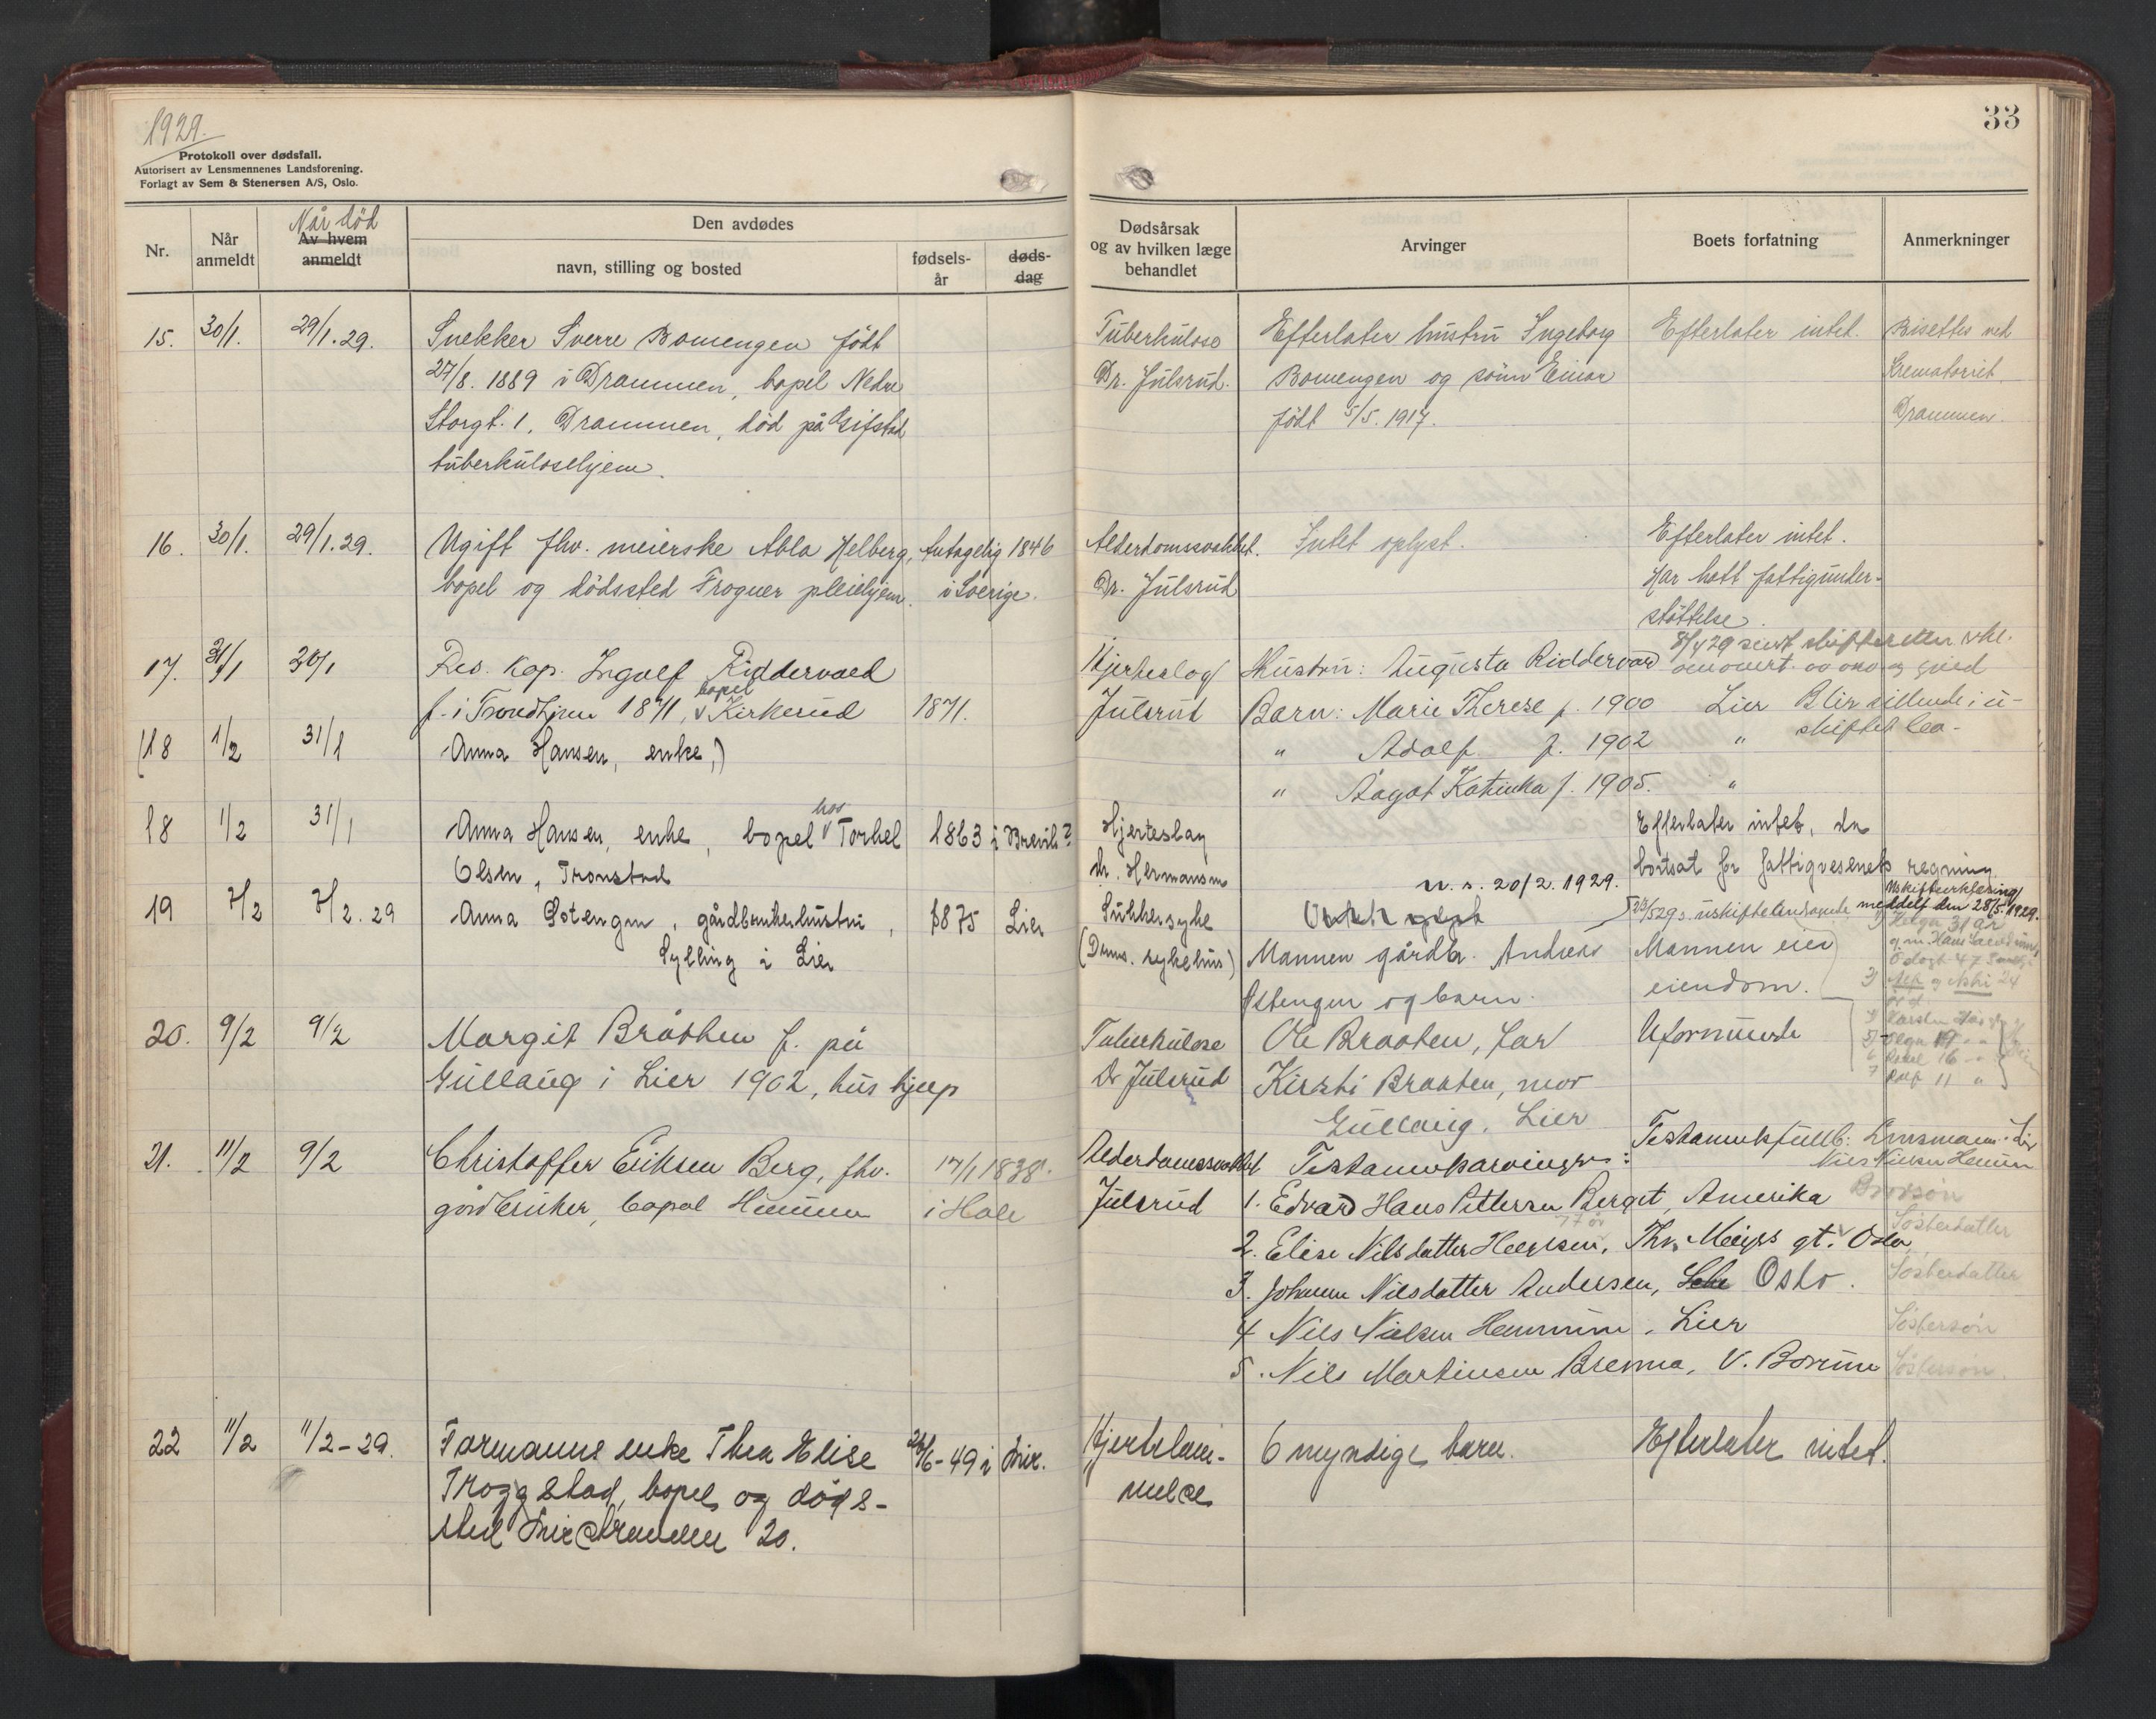 1929.
Protokoll over dødsfall.
Autorisert av Lensmennenes Landsforening.
Forlagt av Sem & Stenersen A/S, Oslo.
33
Nr.
Når anmeldt
Når död
Av hvem anmeldt
Den avdødes
navn, stilling og bosted
fødsels-år
døds-dag
Dødsårsak og av hvilken læge behandlet
Arvinger
Boets forfatning
Anmerkninger
15. 30/1. 29/1.29. Snekker Sverre Bomengen född
27/8. 1889 i Drammen, bopel Nedre
Storgt. 1. Drammen, död på
tuberkulosehjem.
Tuberkulose
Dr. Julsrud.
Efterlater hustru Ingeborg
Bomengen og sönn Einar
född 5/5. 1917.
Efterlater intet.
Bisettes ved
Krematoriet
Drammen.
16. 30/1. 29/1.29. Ugift fhv. meierske Abla Helberg, Antagelig 1846
bopel og dödssted Frogner pleiehjem. i Sverige.
Alderdomssvakhet.
Dr. Julsrud
Intet oplyst.
Efterlater intet.
Har hatt fattigunder-
støttelse.
17. 31/1 30/1 Res. Kap. Ingolf Riddervold
f. i Trondhjem 1871, bopel Kirkerud 1871.
Hjerteslag
Julsrud
Hustru: Augusta Riddervold
Barn: Marie Therese f. 1900 Lier
" Adolf f. 1902 "
" Aagot Katinka f. 1905. "
Blir sittende i u-
skiftet bo.
(18 1/2 31/1 Anna Hansen, enke,)
18 1/2 31/1 Anna Hansen, enke, bopel hos Torkel 1863 i Brevik?
Olsen, Tronstad
Hjerteslag
dr. Hermansen
Efterlater intet, da
bortsat for fattigvesenets regning.
19 7/2 7/2.29 Anna Østengen, gårdbrukerhustru, 1875 Lier
Sylling i Lier
Sukkersyke
(Dmns. sykehus)
20/2. 1929.
Mannen gårdbr. Andreas
Østengen og barn.
Mannen eier
eiendom.
Uskifteerklæring
meddelt den 28/5. 1929.
Helga 31 år
20. 9/2 9/2 Margit Bråthen f. på
Gullaug i Lier 1902, hushjelp
Tuberkulose
Dr Julsrud
Ole Braaten, far
Kirsti Braaten, mor
Gullaug. Lier
Uformuende
21. 11/2 9/2 Christoffer Eriksen Berg, fhv. 17/1 1838.
gårdbruker, bopel Hennum i Hole
Alderdomssvakhet
Julsrud
Testamentarvinger:
1. Edvard Hans Pettersen Berget, Amerika
2. Elise Nilsdatter Helgesen, Thv. Meiers gt. Oslo
3. Johanne Nilsdatter Andersen, Oslo.
4 Nils Nielsen Hennum, Lier
5. Nils Martinsen Brenna, V. Borum
Testamentsfullb: Lensmann i Lier
Nils Nielsen Hennum
Brorsön
Sösterdatter
Sösterdatter
Söstersön
Söstersön
22 11/2 11/2-29. Formanns enke Thea Elise 26/6-49 i Lier.
Trogstad, bopel og døds-
sted Lierstranden 20.
Hjertelam-
melse
6 myndige barn.
Efterlater intet.